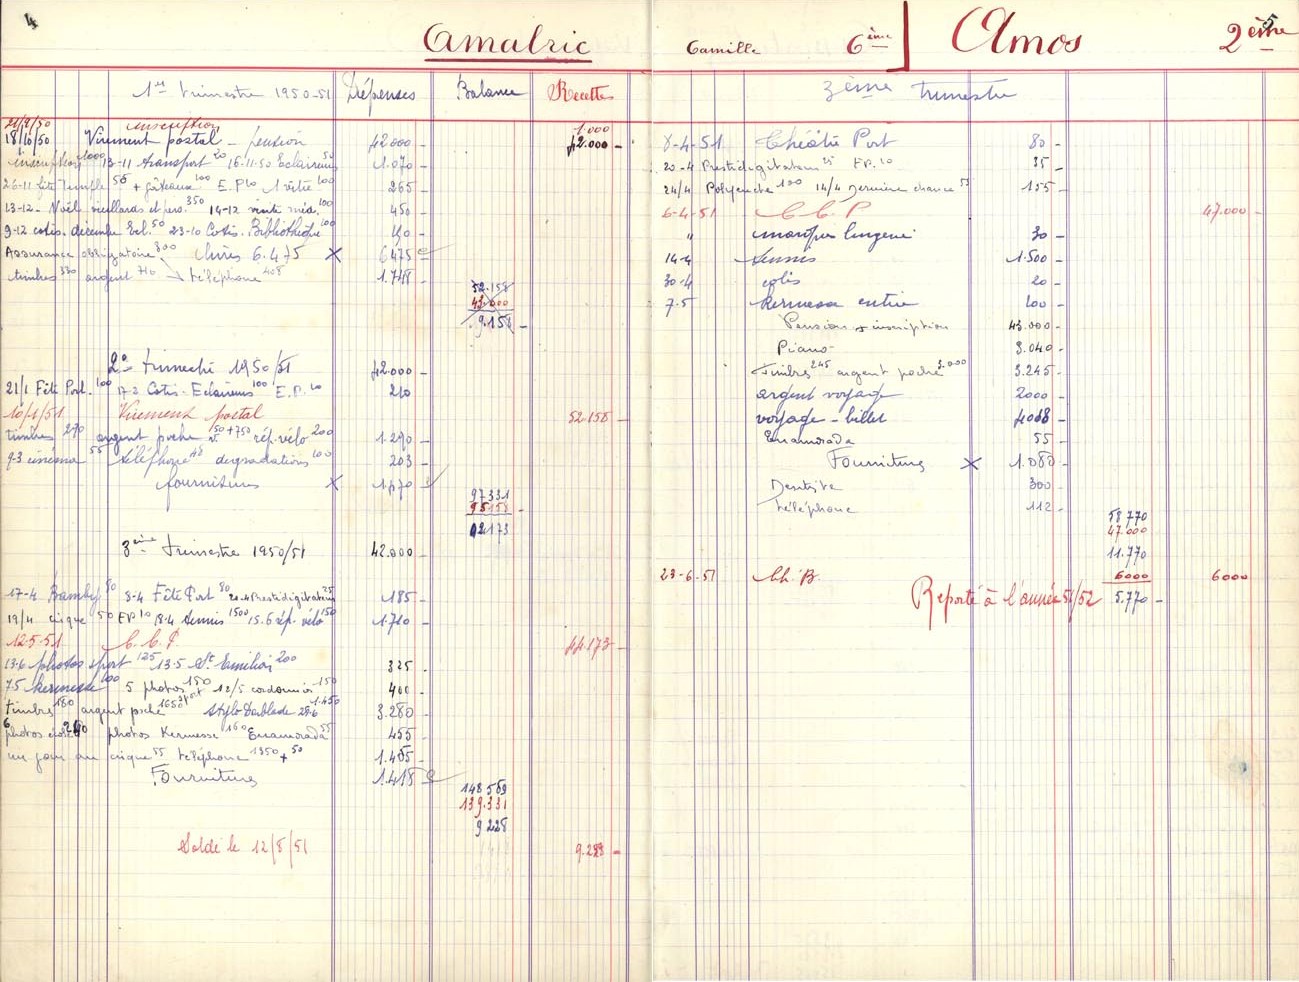 4
Amalric
Camille 6ème
1er trimestre 1950-51 Dépenses Balance Recettes
21/9/50 inscription 1.000
18/10/50 Virement postal - pension 42.000 42.000 -
inscription 1000 13-11 transport 20 16.11.50 Eclaireurs 50 1.070 -
26-11 fête Temple 55 + gâteaux 100 E.P 10 100 265 -
13-12- Noël vieillards et pro. 350 14-12 visite méd. 100 450 -
9-12 cotis. décembre Ecl. 50 23-10 Cotis. Bibliothèque 100 150 -
Assurance obligatoire 300 Livres 6.475 x 6475
timbres 330 argent 710 téléphone 408 1.748 -
52.158
43.000
9.158 -
2e trimestre 1950/51 42.000 -
21/1 Fête Port. 100 17-2 Cotis. Eclaireurs 100 E.P. 10 210
10/1/51 Virement postal 52.158 -
timbres 290 argent poche 50+750 rép. vélo 200 1.290 -
9-3 cinéma 55 téléphone 48 degradations 100 203 -
fournitures x 1.470 -
97331
95158 -
02173
3ème trimestre 1950/51 42.000 -
17-4 Bamby 80 8-4 Fête Port 80 20-4 Prestidigitateur 25 185 -
19/4 cirque 50 EP 10 18.4 tennis 1500 15.6 rép. vélo 150 1.710 -
12.5.51 C.C.P 44.173 -
13.6 photos sport 125 13.5 St Emilion 200 325 -
7.5 kermesse 100 5 photos 150 12/5 cordonnier 150 400 -
timbres 180 argent poche 1650 stylo 28-6 1.450 3.280 -
photos 240 photos Kermesse 160 Enamorada 55 455 -
un jour au cirque 55 téléphone 1350 + 50 1.455 -
Fournitures 1.418
148 559
139.331
9228
Soldé le 12/8/51 9.228 -
5
Amos 2ème
3ème trimestre
8-4-51 Théâtre Port 80 -
20-4 Prestidigitateur 25 EP. 10 35 -
24/4 Polyeucte 100 14/4 Dernière chance 55 155 -
6-4-51 C.C.P 47.000 -
" marques lingerie 30 -
14-4 tennis 1.500 -
30-4 colis 20 -
7-5 kermesse entrée 100 -
Pension & inscription 43.000 -
Piano 3.040 -
Timbres 245 argent poche 3.000 3.245 -
argent voyage 2000 -
voyage - billet 4008 -
Enamorada 55 -
Fournitures x 1.080 -
Dentiste 300 -
téléphone 112 -
58 770
47.000
11.770
23-6-51 Ch. B. 6000 6000
Reporté à l'année 51/52 5.770 -